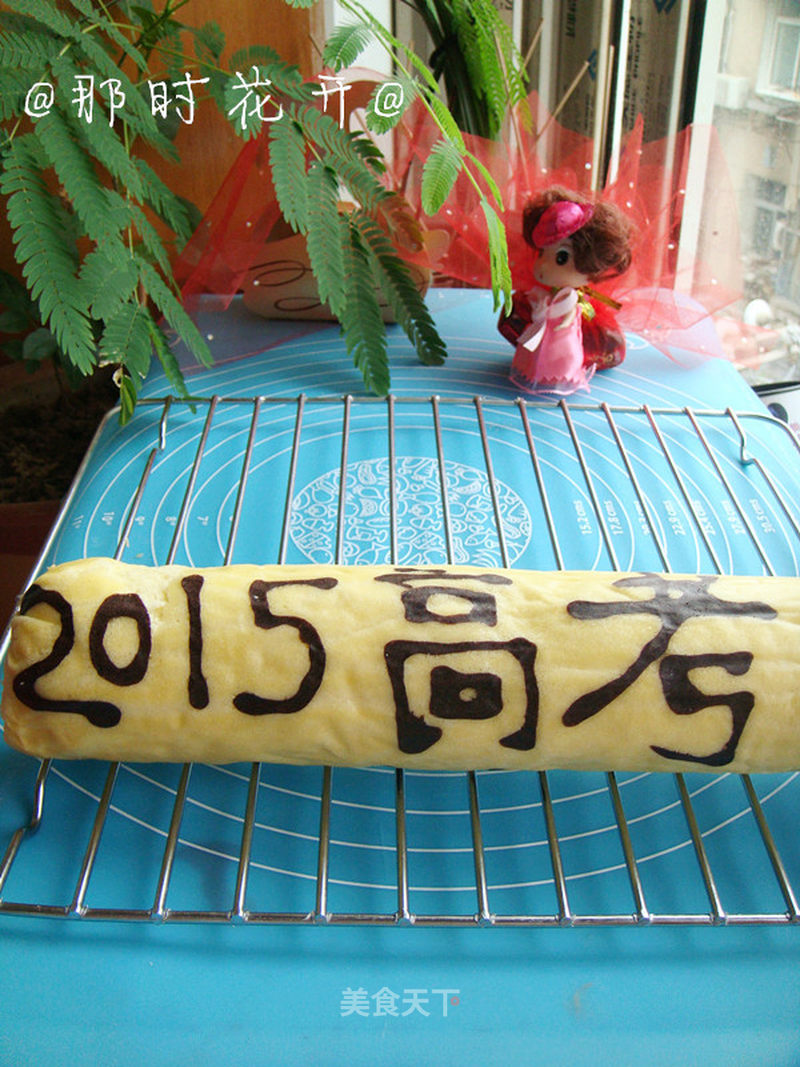 @那时花开@
2015高考
美食天下